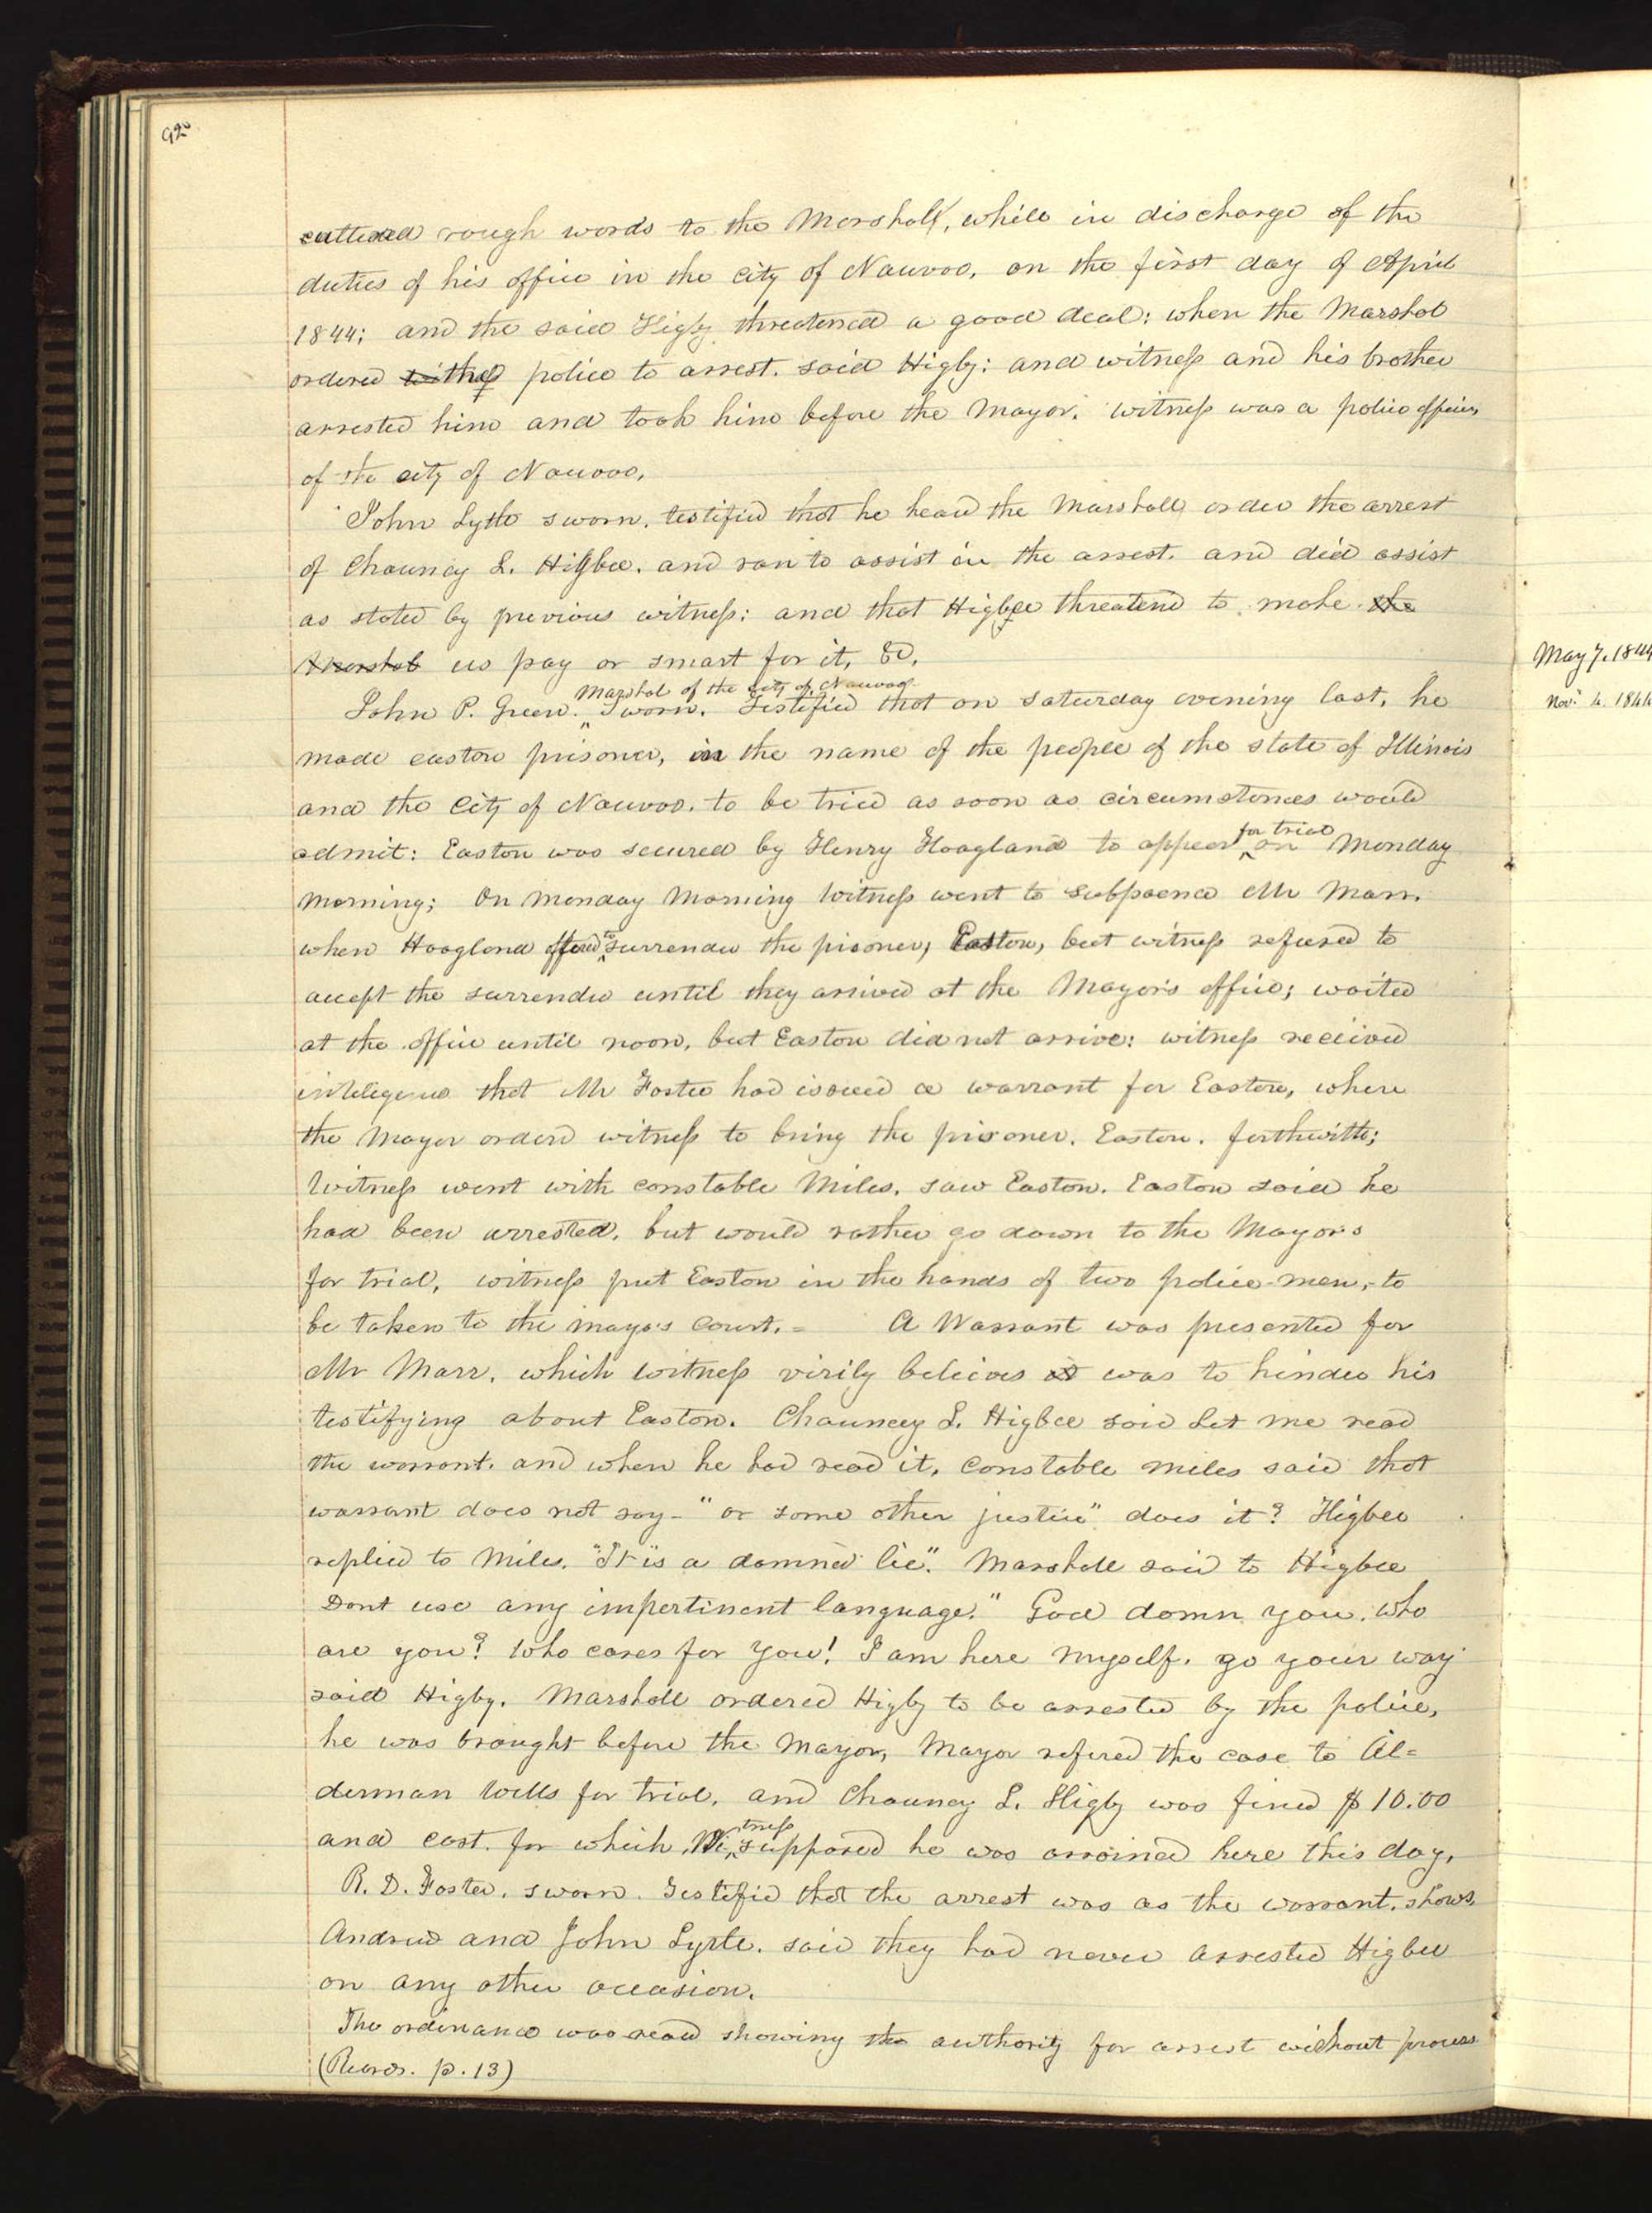 92
uttered rough words to the Marshall, while in discharge of the
duties of his office in the city of Nauvoo, on the first day of April
1844; and the said Higby threatened a good deal: when the Marshal
ordered witness police to arrest. said Higby: and witness and his brother
arrested him and took him before the Mayor. witness was a police officer
of the city of Nauvoo,
John Lytle sworn, testified that he heard the Marshall order the arrest
of Chauncy L. Higbee. and ran to assist in the arrest. and did assist
as stated by previous witness: and that Higbee threatend to make the
Marshal us pay or smart for it, &c,
Marshal of the city of Nauvoo
John P. Green. Sworn. Testified that on saturday evening last, he
made easton prisoner, in the name of the people of the state of Illinois
and the City of Nauvoo. to be tried as soon as circumstances would
admit: Easton was secured by Henry Hoagland to appear for trial on Monday
morning; On monday Morning Witness went to Subpoena Mr Marr.
when Hoagland offered to surrender the prisoner, Easton, but witness refused to
accept the surrender until they arrived at the Mayor's office; waited
at the office until noon, but Easton did not arrive: witness received
intelegence that Mr Foster had issued a warrant for Easton, when
the Mayor orderd witness to bring the prisoner. Easton. forthwith;
Witness went with constable Miles. saw Easton. Easton said he
had been arrested, but would rather go down to the Mayors
for trial, witness put Easton in the hands of two police-men,- to
be taken to the mayor's court.= A Warrant was presented for
Mr Marr, which witness virily believes it was to hinder his
testifying about Easton. Chauncey L. Higbee said Let me read
the warrant. and when he had read it, Constable Miles said that
warrant does not say- "or some other justice" does it? Higbee
replied to Miles. "It is a damned lie". Marshall said to Higbee
Dont use any impertinent language." God damn you. who
are you? Who cares for you! I am here myself. go your way
said Higby. Marshall ordered Higby to be arrested by the police,
he was brought before the Mayor, Mayor refered the case to Al=
derman Wells for trial, and Chauncy L. Higby was fined $10.00
and cost. for which, Witness supposed he was arrained here this day,
R. D. Foster. sworn. Testified that the arrest was as the warrant. shows,
Andrew and John Lytle. said they had never arrested Higbee
on any other occasion.
The ordinance was read showing the authority for arrest without process
(Records. p. 13)
May 7. 1844
Nov. 4. 1844